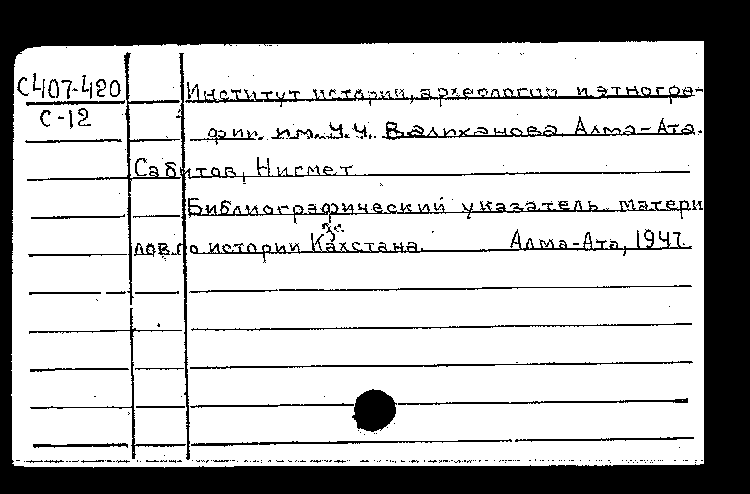 С407-420 Институт истории, археологии и этногра-
С-12 фии им. Ч.Ч. Валиханова Алма-Ата.
Сабитов, Нигмет
Библиографический указатель матери
лов по истории Кахстана. Алма-Ата, 1947.